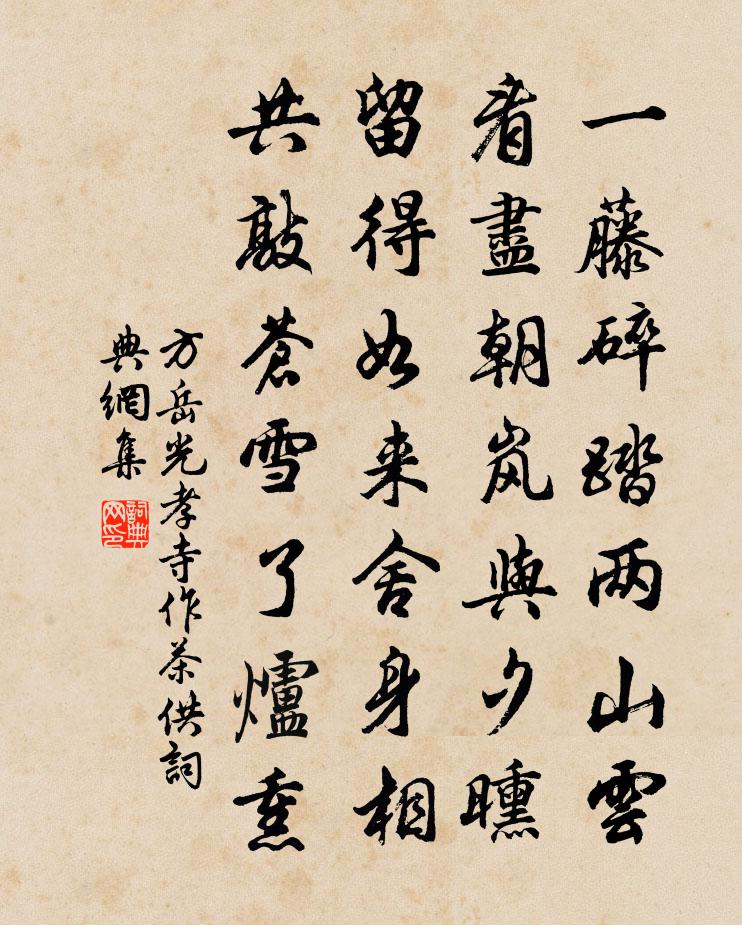 一藤碎踏两山雲
看盡朝岚與夕曛
留得如来舍身相
共敲蒼雪了爐熏
方岳光孝寺作茶供詞
典網集
詞典网印